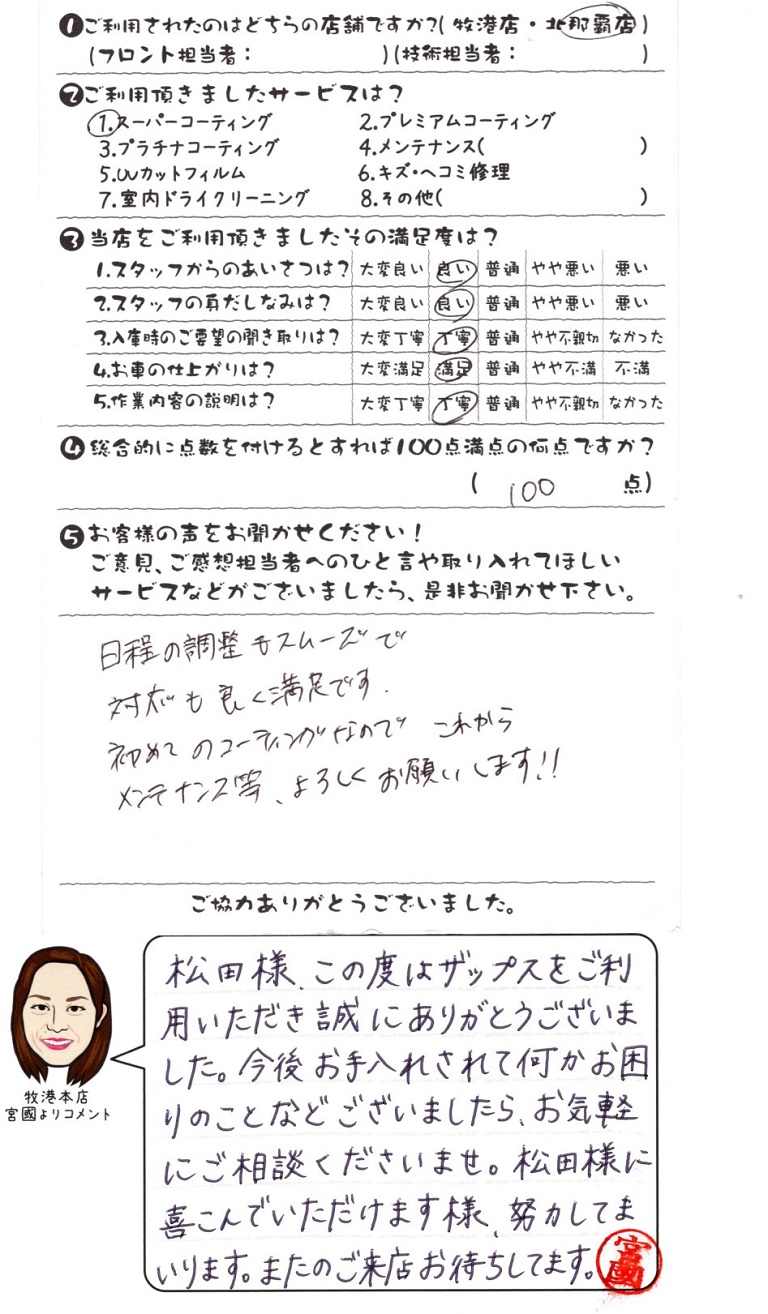 ❶ご利用されたのはどちらの店舗ですか?(牧港店・北那覇店)
(フロント担当者: )(技術担当者: )
❷ご利用頂きましたサービスは?
1.スーパーコーティング 2.プレミアムコーティング
3.プラチナコーティング 4.メンテナンス( )
5.UVカットフィルム 6.キズ・ヘコミ修理
7.室内ドライクリーニング 8.その他( )
❸当店をご利用頂きましたその満足度は?
1.スタッフからのあいさつは? 大変良い 良い 普通 やや悪い 悪い
2.スタッフの身だしなみは? 大変良い 良い 普通 やや悪い 悪い
3.入庫時のご要望の聞き取りは? 大変丁寧 丁寧 普通 やや不親切 なかった
4.お車の仕上がりは? 大変満足 満足 普通 やや不満 不満
5.作業内容の説明は? 大変丁寧 丁寧 普通 やや不親切 なかった
❹総合的に点数を付けるとすれば100点満点の何点ですか?
( 100 点)
❺お客様の声をお聞かせください!
ご意見、ご感想担当者へのひと言や取り入れてほしい
サービスなどがございましたら、是非お聞かせ下さい。
日程の調整もスムーズで
対応も良く満足です.
初めてのコーティングなので これから
メンテナンス等、よろしくお願いします!!
ご協力ありがとうございました。
松田様、この度はザップスをご利
用いただき誠にありがとうございま
した。今後お手入れされて何かお困
りのことなどございましたら、お気軽
にご相談くださいませ。松田様に
喜こんでいただけます様、努力してま
いります。またのご来店お待ちしてます。
宮國
牧港本店
宮國よりコメント